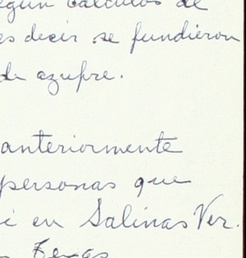 según cálculos de
es decir se fundieron
de azufre.
anteriormente
personas que
i en Salinas Ver.
Texas